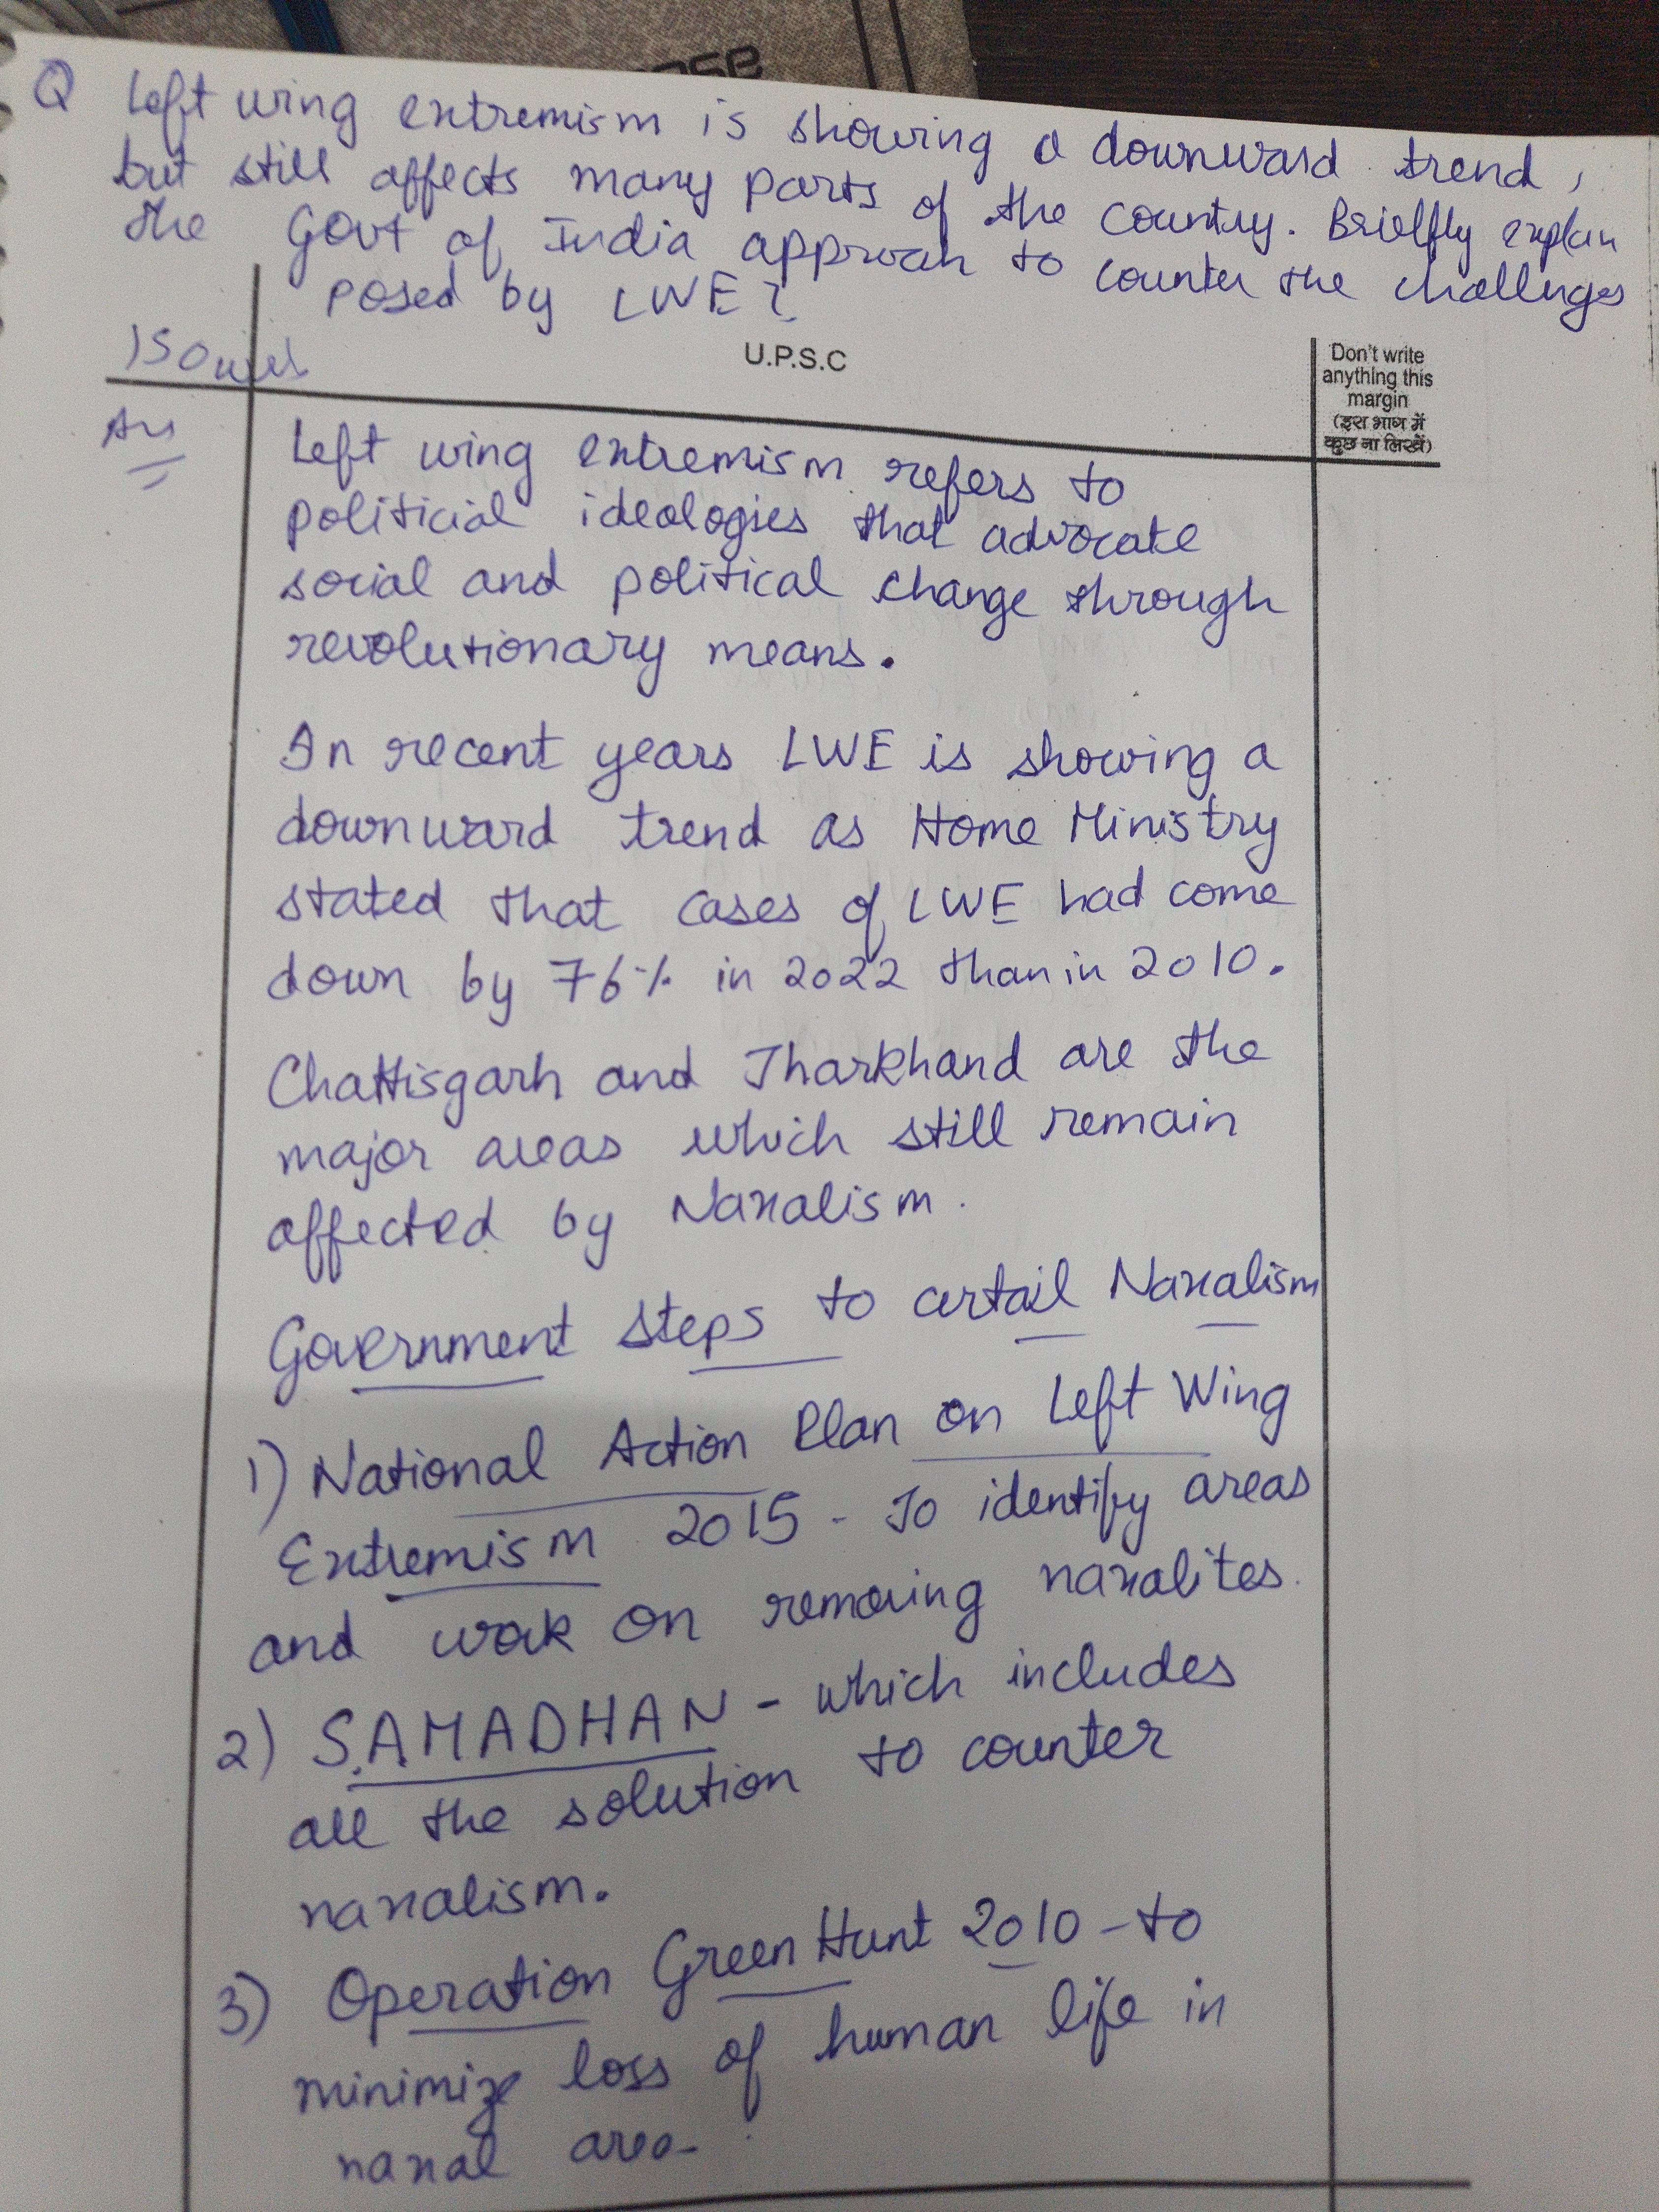 Q Left wing extremism is showing a downward trend,
but still affects many parts of the country. Brielfly explain
the Govt of India approah to counter the challenges
posed by LWE?
150 words
U.P.S.C
Don't write
anything this
margin
(इस भाग में
कुछ ना लिखें)
Ans
Left wing extremism refers to
politicial ideologies that advocate
social and political change through
revolutionary means.
In recent years LWE is showing a
downward trend as Home Ministry
stated that cases of LWE had come
down by 76% in 2022 than in 2010.
Chattisgarh and Jharkhand are the
major areas which still remain
affected by Naxalism.
Government steps to curtail Naxalism
1) National Action Plan on Left Wing
Extremism 2015 - To identify areas
and work on removing naxalites.
2) SAMADHAN - which includes
all the solution to counter
naxalism.
3) Operation Green Hunt 2010 - to
minimize loss of human life in
naxal area.